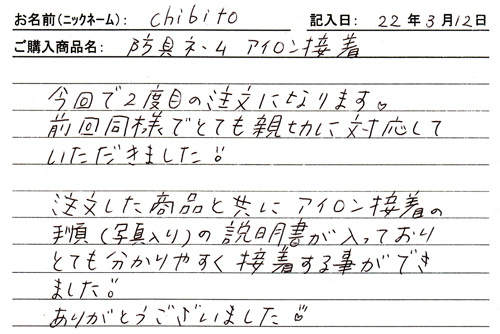 お名前(ニックネーム): chibito 記入日: 22年3月12日
ご購入商品名: 防具ネーム アイロン接着
今回で2度目の注文になります。
前回同様でとても親切に対応して
いただきました!!
注文した商品と共にアイロン接着の
手順(写真入り)の説明書が入っており
とても分かりやすく接着する事ができ
ました!!
ありがとうございました!!